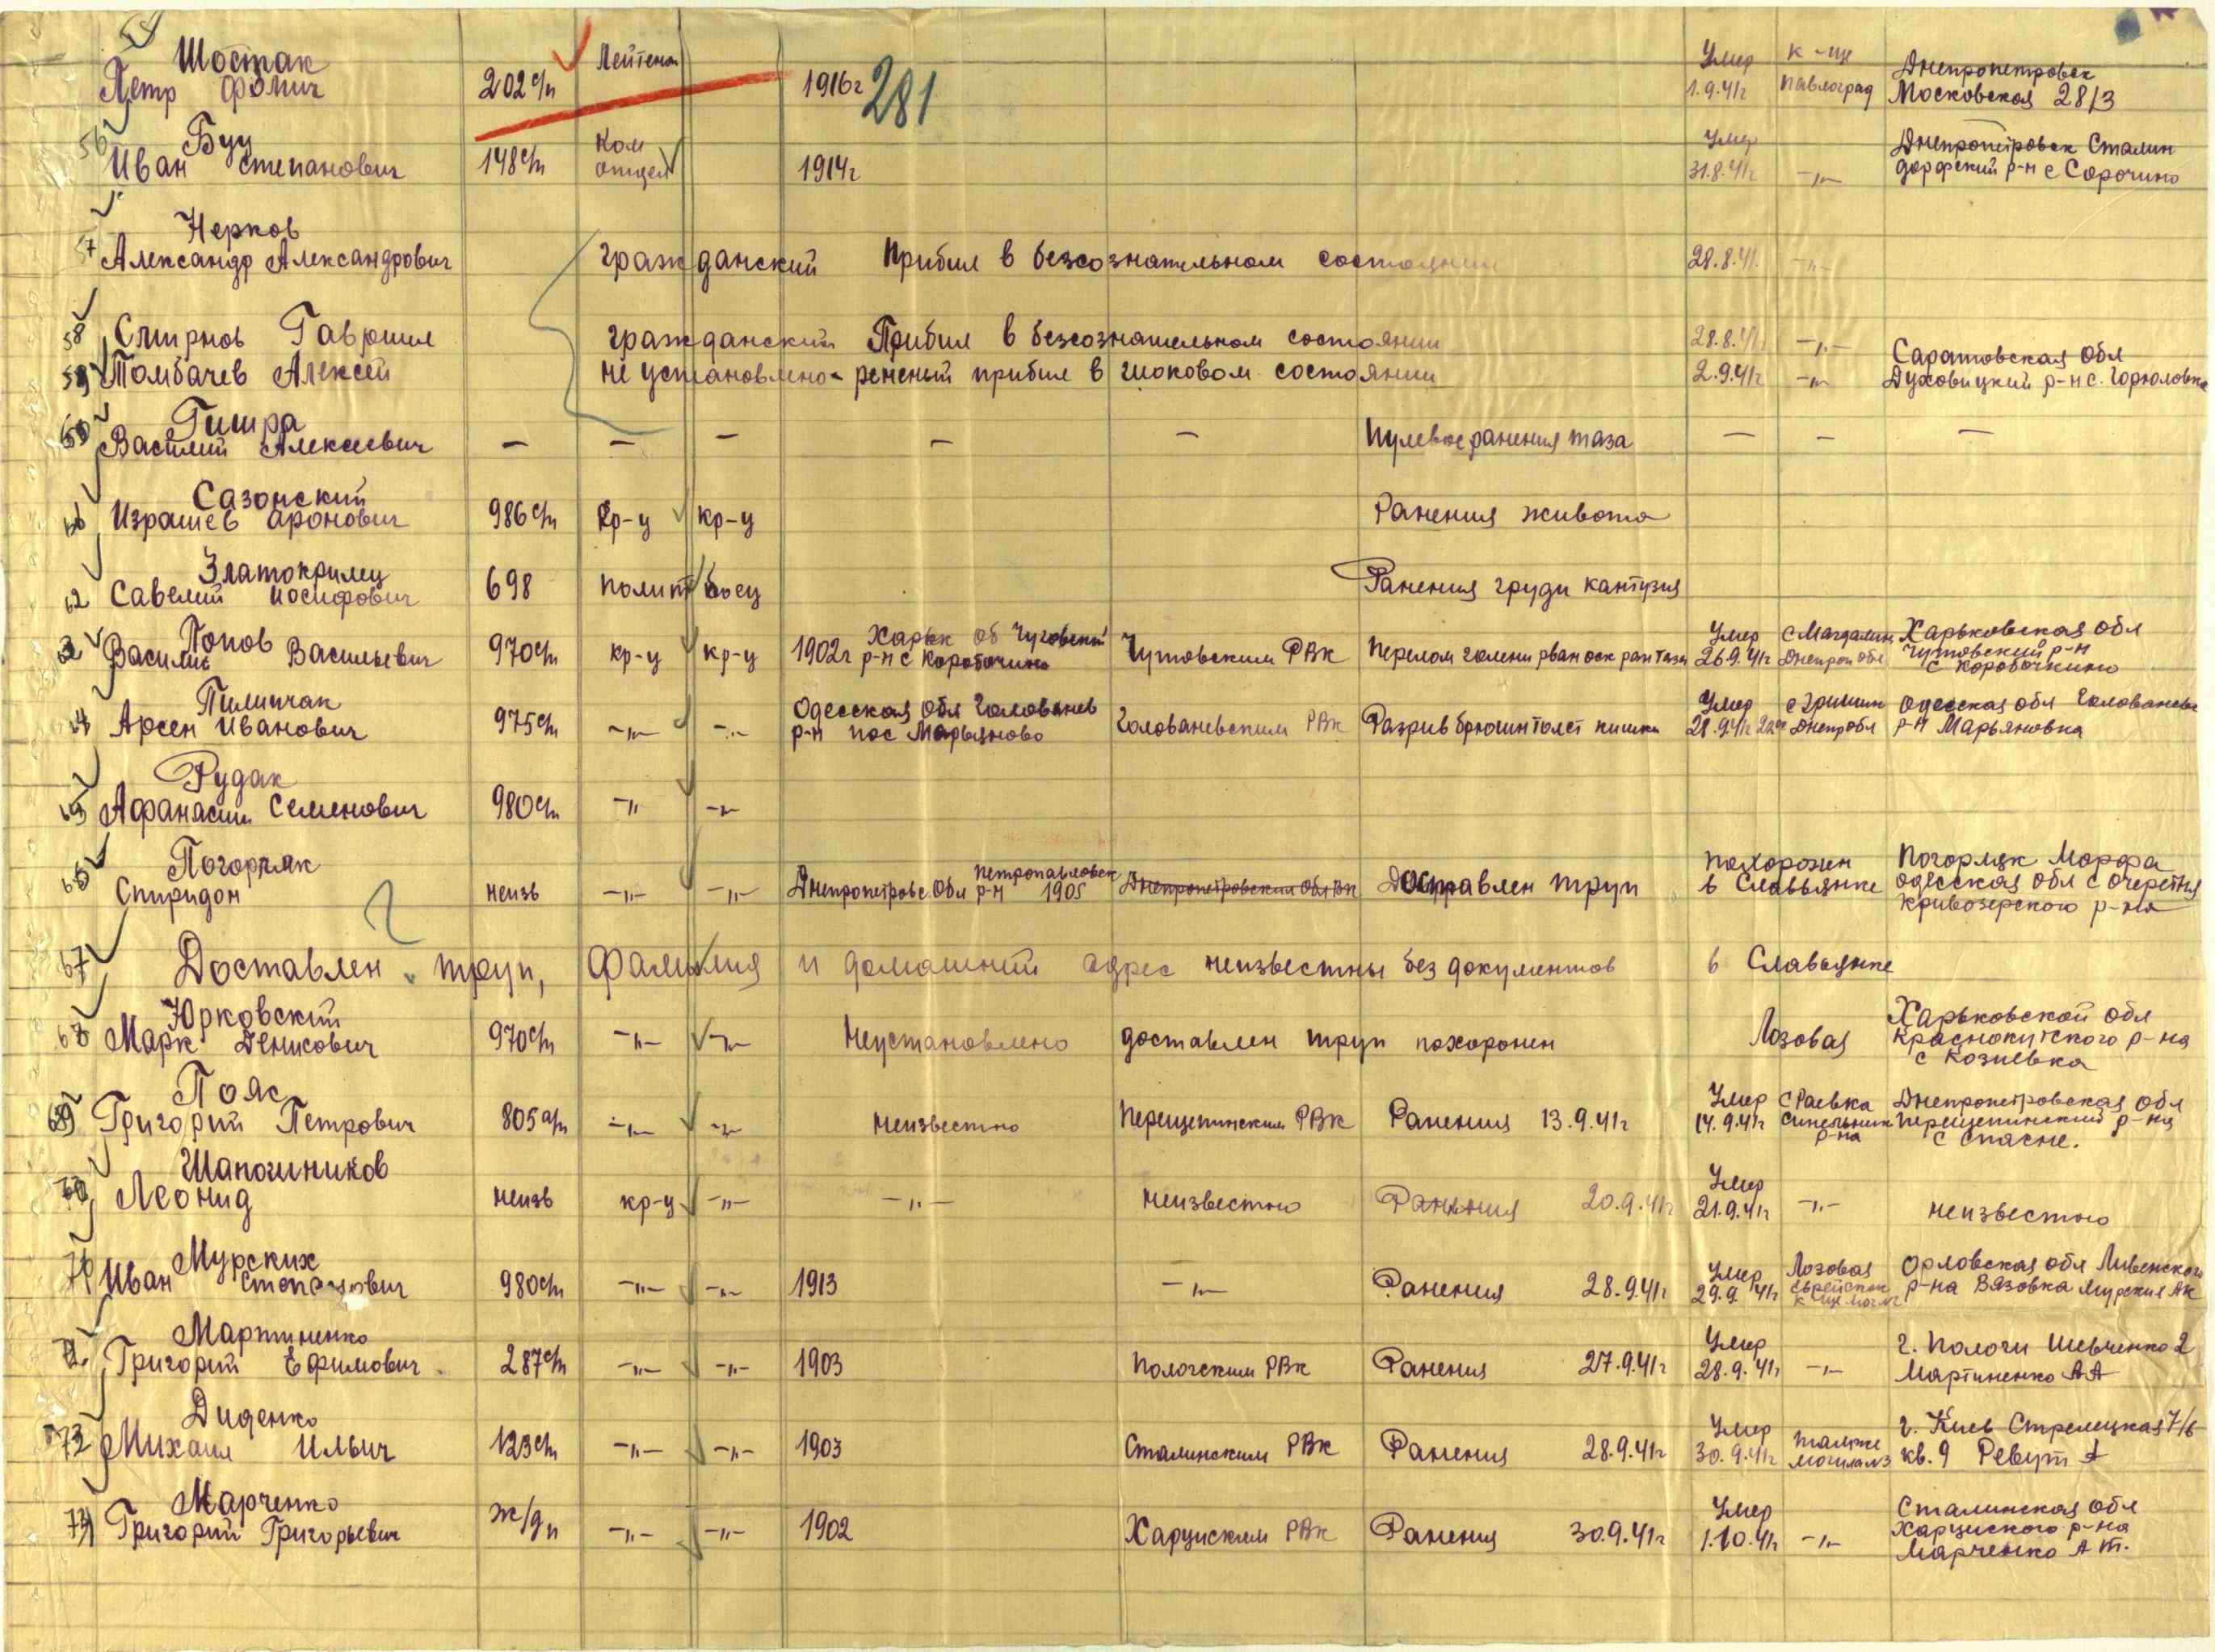 Шостак Лейтенан Умер к-ще Днепропетровск
Петр Фомич 202 с/п 1916г 281 1.9.41г Павлоград Московская 28/3
56 Буц Ком Умер Днепропетровск Сталин
Иван Степанович 148 с/п отдел 1914г 31.8.41г -"- дорфский р-н с Сорочино
57 Нерков
Александр Александрович гражданский Прибил в безсознательном состоянии 28.8.41. -"-
58 Смирнов Гавриил гражданский Прибил в безсознательном состоянии 28.8.41г -"- Саратовская Обл
59 Томбачев Алексей не установлено- раненый прибил в шоковом состоянии 2.9.41г -"- Духовицкий р-н с. Горюловка
60 Гишра
Василий Алексеевич — — — — — Пулевое ранения таза — — —
Сазонский
Израилев Аронович 986 с/п кр-ц кр-ц Ранения живота
Златокрилец
62 Савелий Иосифович 698 полит боец Ранения груди кантузия
63 Попов Харьк об Чуговский Умер с Магдалин Харьковская обл
Василий Васильевич 970 с/п кр-ц кр-ц 1902г р-н с Коробочкино Чутовским РВК Перелом голени рван оск ран таза 26.9.41г Днепроп обл Чутовский р-н
с Коробочкино
64 Пилипчак Одесская обл Голованев Умер Одесская обл Голованевс
Арсен Иванович 975 с/п -"- -"- р-н пос Марьяново Голованевским РВК Разрив брюшин толст кишки 28.9.41г Днепр обл р-н Марьяновка
Рудак
65 Афанасий Семенович 980 с/п -"- -"-
Погорляк Петропавловск похоронен Погорляк Марфа
Спиридон неизв -"- -"- Днепропетровс Обл р-н 1905 Днепропетровским Обл ВК Доставлен труп в Славьянке Одесская обл с Очеретня
Кривозерского р-на
67 Доставлен труп, Фамилия и домашний адрес неизвестны без документов в Славьянке
68 Юрковский Харьковской обл
Марк Денисович 970 с/п -"- -"- Неустановлено доставлен труп похоронен Лозовая Краснокутского р-на
с Козиевка
69 Пояс Умер с Раевка Днепропетровская обл
Григорий Петрович 805 а/п -"- -"- неизвестно Перещепинским РВК Ранения 13.9.41г 14.9.41г Синельник Перещепинский р-на
р-на с Спасне.
Шапошников Умер
Леонид неизв кр-ц -"- -"- неизвестно Ранения 20.9.41г 21.9.41г -"- неизвестно
71 Мурских Умер Лозовая Орловская обл Ливенского
Иван Степанович 980 с/п -"- -"- 1913 -"- Ранения 28.9.41г 29.9.41г Еврейское р-на Вязовка Мурския АК
к-ще
72. Мартиненко Умер г. Пологи Шевченко 2
Григорий Ефимович 287 с/п -"- -"- 1903 Пологским РВК Ранения 27.9.41г 28.9.41г -"- Мартиненко АА
73 Диденко Умер г. Киев Стрелецкая 7/6
Михаил Ильич 123 с/п -"- -"- 1903 Сталинским РВК Ранения 28.9.41г 30.9.41г также могила №3 кв. 9 Ревут А
74 Марченко Умер Сталинская обл
Григорий Григорьевич ж/д п -"- -"- 1902 Харцискем РВК Ранения 30.9.41г 1.10.41г -"- Харциского р-на
Марченко А т.